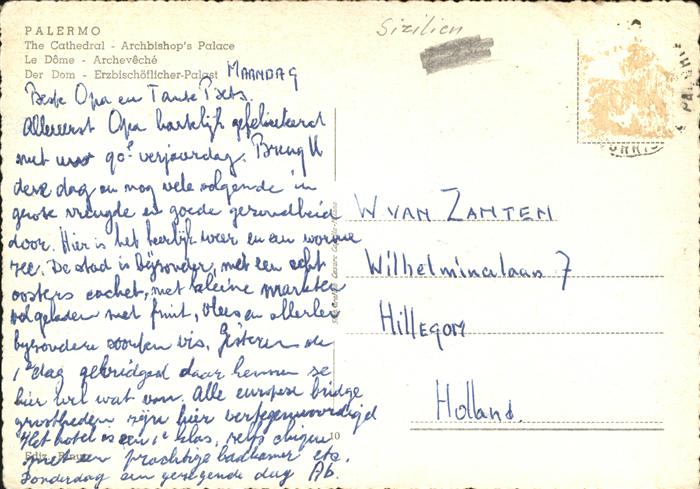 Sizilien
PALERMO
The Cathedral - Archbishop's Palace
Le Dôme - Archevêché
Der Dom - Erzbischöflicher-Palast
MAANDAG
Beste Opa en Tante Piets.
Allereerst Opa hartelijk gefeliciteerd
met uw 90e verjaardag. Breng U
deze dag en nog vele volgende in
grote vreugde en goede gezondheid
door. Hier is het heerlijk weer en een warme
zee. De stad is bijzonder, met een echt
oosters cachet, met kleine markten
volgeladen met fruit, vlees en allerlei
bijzondere soorten vis. Gisteren de
1e dag gebridged daar kennen se
hier wel wat van. Alle europese bridge
grootheden zijn hier vertegenwoordigd
Het hotel is een 1e klas, zelfs eigen
met een prachtige badkamer etc.
Donderdag een gezegende dag Ab.
W VAN ZANTEN
Wilhelminalaan 7
HILLEGOM
Holland.
10